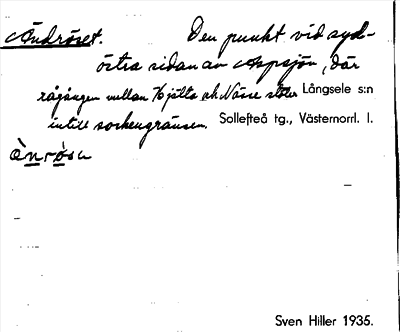 Ändröset. Den punkt vid syd-
östra sidan av Aspsjön, där
rågången mellan Hjälta och Nässe stöter Långsele s:n
intill sockengränsen. Sollefteå tg., Västernorrl. l.
ànròsa
Sven Hiller 1935.